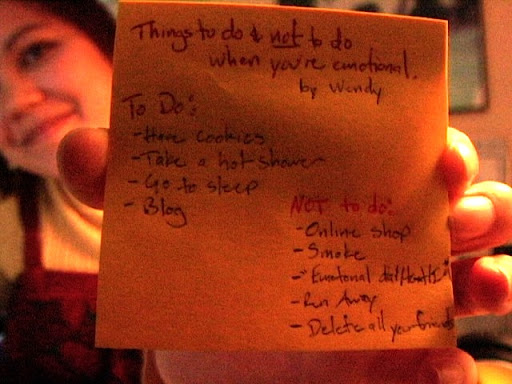 Things to do & not to do
when you're emotional.
by Wendy
To Do:
-Have cookies
-Take a hot shower
-Go to sleep
-Blog
NOT to do:
-Online shop
-Smoke
-Emotional
-Run Away
-Delete all your friends